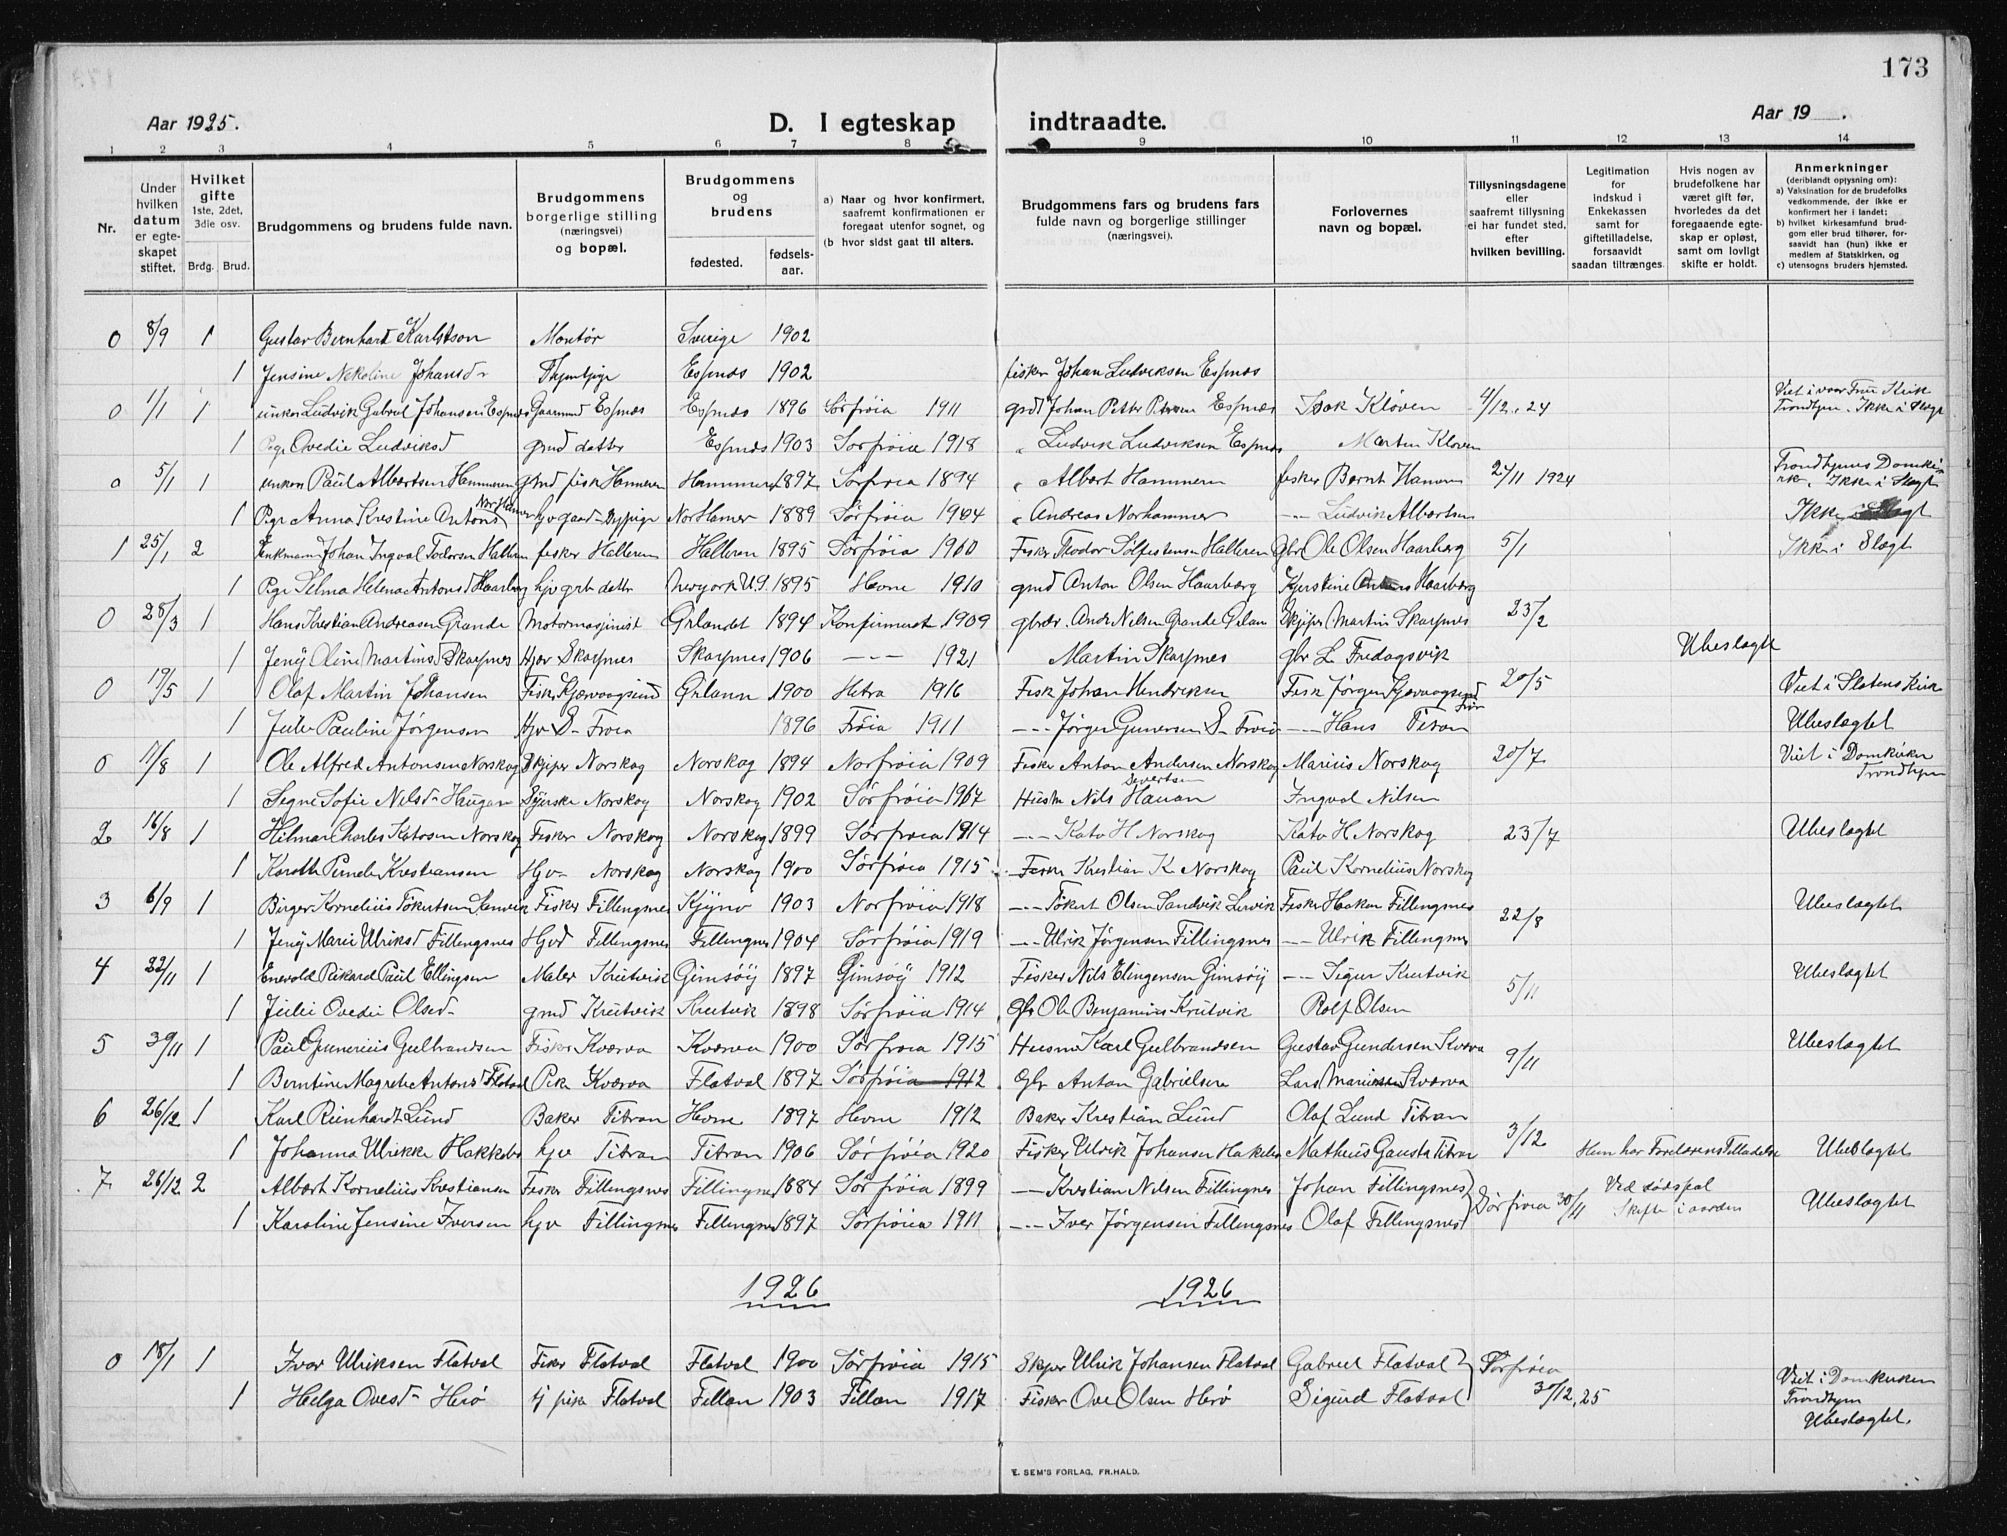 173
Aar 1925. D. I egteskap indtraadte. Aar 19 .
1 2 3 4 5 6 7 8 9 10 11 12 13 14
Nr.
Under hvilken datum er egteskapet stiftet.
Hvilket gifte 1ste, 2det, 3die osv.
Brdg. Brud.
Brudgommens og brudens fulde navn.
Brudgommens borgerlige stilling (næringsvei) og bopæl.
Brudgommens og brudens
fødested. fødselsaar.
a) Naar og hvor konfirmert, saafremt konfirmationen er foregaat utenfor sognet, og
(b hvor sidst gaat til alters.
Brudgommens fars og brudens fars fulde navn og borgerlige stillinger (næringsvei).
Forlovernes navn og bopæl.
Tillysningsdagene eller saafremt tillysning ei har fundet sted, efter hvilken bevilling.
Legitimation for indskud i Enkekassen samt for giftetilladelse, forsaavidt saadan tiltrænges.
Hvis nogen av brudefolkene har været gift før, hvorledes da det foregaaende egteskap er opløst, samt om lovligt skifte er holdt.
Anmerkninger (deriblandt oplysning om):
a) Vaksination for de brudefolks vedkommende, der ikke er konfirmert her i landet;
b) hvilket kirkesamfund brudgom eller brud tilhører, forsaavidt han (hun) ikke er medlem af Statskirken, og
c) utensogns bruders hjemsted.
0 8/9 1 Gustav Bernhard Karlstson Montør Sverige 1902
1 Jensine Nekoline Johansd Espnæs 1902 fisker Johan Ludviksen Espnæs
0 1/1 1 unkar Ludvik Gabriel Johansen Espnæs Gaarmand Espnæs Espnæs 1896 Sørfrøia 1911 Johan Petter Espnæs Isak Kløven 4/12, 24 Viet i vaar Frue Kirk Trondhjem. Ikke i Slægt
1 Pige Ovedie Ludviksd gmd datter Espnæs 1903 Sørfrøia 1918 " Ludvik Ludviksen Espnæs Martin Kløven
0 5/1 1 unkar Paul Albertsen Hammeren gmd fisk Hammeren Hammeren 1897 Sørfroia 1894 " Albert Hammeren fisker Bernt Hameren 27/11 1924 Trondhjems Domkirk Ikke i Slægt
1 Pige Anna Kristine Antons NorHamer NorHamer 1889 Sørfrøia 1904 " Andreas Norhammer Ludvik Albertsen Ikke i Slægt
1 25/1 2 Enkmann Johan Ingval Todorsen Halleren fisker Halleren Halleren 1895 Sørfrøia 1900 Fisker Teodor Halleren Gbr Ole Olsen Haarberg 5/1 Ikke i Slægt
1 Pige Selma Helena Antonsd Haarberg datter Newyork U.S. 1895 Hevne 1910 gmd Anton Olsen Haarberg Kjerstine Haarberg
0 28/3 1 Hans Kristian Andreasen Grande Motormasjinist Ørlandet 1894 Konfirmert 1909 Andr Nilsen Grande Ørlan Skjiper Martin Skarpnes 23/2
1 Jeny Oline Martinsd Skarpnes Hjv Skarpnes Skarpnes 1906 --- 1921 Martin Skarpnes gbr L Fredagsvik Ubeslagte
0 17/5 1 Olaf Martin Johansen Fisk Kjærvaagsund Ørlann 1900 Hitra 1916 Fisk Johan Hendriksen Fisk Jørgen Kjærvaagsund 20/5 Viet i Slatens Kirk
1 Julie Pauline Jørgensen Hjv S- Froia 1896 Frøia 1911 --- Jørgen Gunersen S- Froia --- Hans Titran Ubeslagtet
0 11/8 1 Ole Alfred Antonsen Norskag Skjiper Norskag Norskag 1894 Norfrøia 1909 Fisker Anton Andersen Norskag Marius Norskag 20/7 Viet i Domkirken Trondhjem
1 Signe Sofie Nilsd Haugan Norskag Norskag 1902 Sørfrøia 1917 Husm Nils Sivertsen Hauan Ingval Nilsen
2 16/8 1 Hilmar Charles Katosen Norskag Fisker Norskag Norskag 1899 Sørfroia 1914 --- Kato H Norskag Kato H Norskag 23/7 Ubeslagtet
1 Kristiansen Hjv- Norskag Norskag 1900 Sørfrøia 1915 Fisker Kristian K Norskag Paul Kornelius Norskag
3 6/9 1 Birger Kornelius Fisker Fillingsnes Kjynø 1903 Norfrøia 1918 --- Olsen Sandvik Fisker Haakon Fillingsnes 22/8 Ubeslagtet
1 Jeny Marie Ulriksd Fillingsnes Hjvd Fillingsnes Fillingnes 1904 Sørfrøia 1919 --- Ulrik Jørgensen Fillingsnes --- Ulrik Fillingnes
4 22/11 1 Enevold Rikard Paul Ellingsen Maler Krutvik Gimsøy 1897 Gimsøy 1912 Fisker Nils Elingensen Gimsøy --- Sigur Krutvik 5/11 Ubeslagtet
1 Julie Ovedie Olsd- gmd Krutvik Krutvik 1898 Sørfrøia 1914 Gbr Ole Benjamins Krutvik Rolf Olsen
5 30/11 1 Paul Gunerius Gulbrandsen Fisker Kværva Kværva 1900 Sørfroia 1915 Husm Karl Gulbrandsen Gustav Gundersen Kværva 9/11 Ubeslagtet
1 Berntine Magrete Antonsd Flatval Pike Kværva Flatval 1897 Sørfrøia 1912 Gbr Anton Gabrielsen Lars Kværva
6 26/12 1 Karl Reinhardt Lund Baker Titran Hevne 1897 Hevne 1912 Baker Kristian Lund Olaf Lund Titran 3/12
1 Johanna Ulrikke Hakkebo hjv Titran Titran 1906 Sørfrøia 1920 Fisker Ulrik Johansen Mathius Gausta Titran Hun har Forelderens Tilladelse Ubeslagtet
7 26/12 2 Albert Kornelius Kristiansen Fisker Fillingsnes Fillingnes 1884 Sørfrøia 1899 --- Kristian Nilsen Fillingnes Johan Fillingsnes Sørfroia 30/11 Ved dødsfal Skifte i aarden Ubeslægtet
1 Karoline Jensine Iversen hjv Fillingsnes Fillingnes 1897 Sørfrøia 1911 --- Iver Jørgensen Fillingsnes Olaf Fillingsnes
1926 1926
0 18/1 1 Ivar Ulriksen Flatval Fisker Flatval Flatval 1900 Sørfrøia 1915 Skjper Ulrik Johansen Flatval Gabriel Flatval Sørfrøia 30/12, 25
1 Helga Ovesd- Herø tj pika Flatval Fillan 1903 Fillan 1917 Fisker Ove Olsen Herø Sigurd Flatval Viet i Domkirken Trondhjem Ubeslagtet.
E. SEM'S FORLAG, FR.HALD.